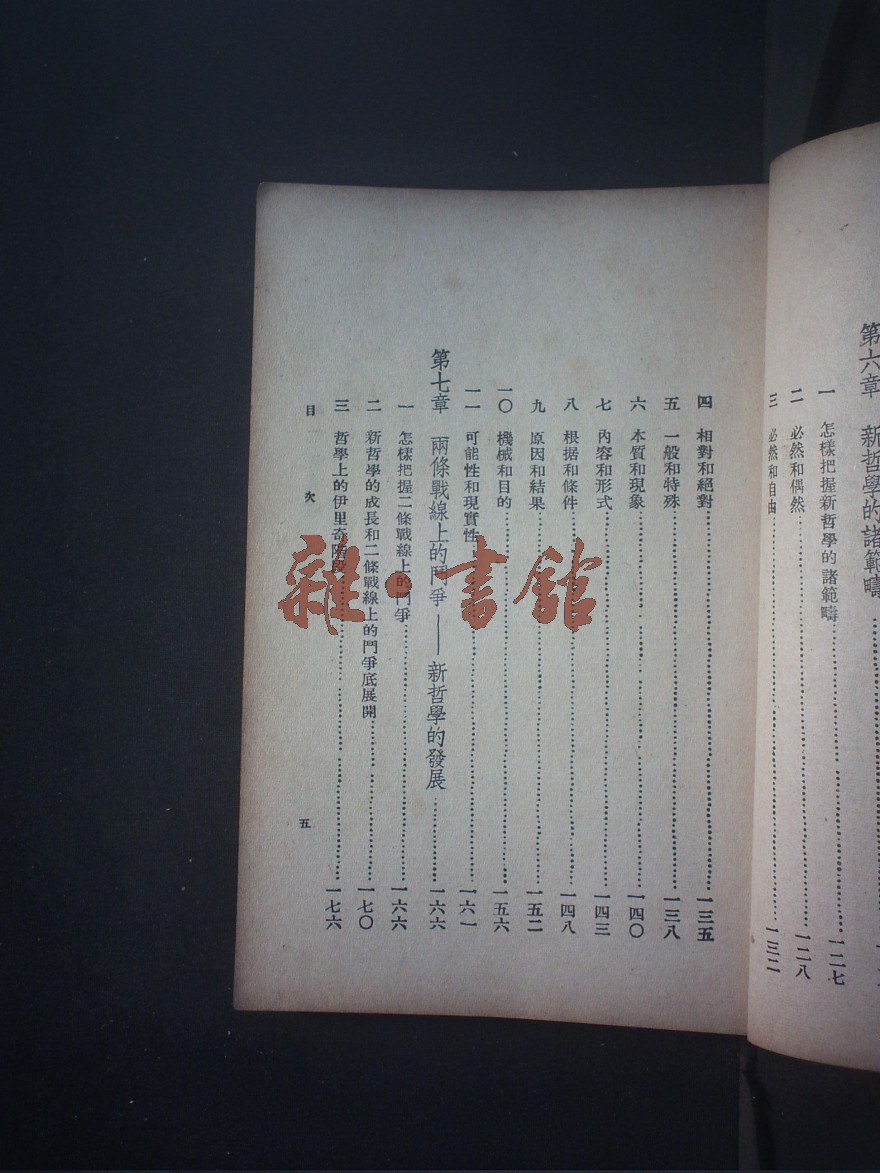 第六章 新哲學的諸範疇
一 怎樣把握新哲學的諸範疇 一二七
二 必然和偶然 一二八
三 必然和自由 一三二
四 相對和絕對 一三五
五 一般和特殊 一三八
六 本質和現象 一四〇
七 內容和形式 一四三
八 根据和條件 一四八
九 原因和結果 一五二
一〇 機械和目的 一五六
一一 可能性和現實性 一六一
第七章 兩條戰線上的鬥爭——新哲學的發展 一六六
一 怎樣把握二條戰線上的鬥爭 一六六
二 新哲學的成長和二條戰線上的鬥爭底展開 一七〇
三 哲學上的伊里奇階段 一七六
目次
五
雜·書館